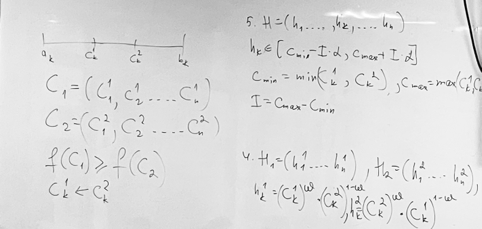 a_k C_k^1 C_k^2 b_k
C_1 = (C_1^1, C_2^1 .... C_n^1)
C_2 = (C_1^2, C_2^2 .... C_n^2)
f(C_1) ⩾ f(C_2)
C_k^1 ← C_k^2
5. H = (h_1 ...., h_k, .... h_n)
h_k ∈ [C_min - I·α, C_max + I·α]
C_min = min(C_k^1, C_k^2), C_max = max(C_k^1, C
I = C_max - C_min
4. H_1 = (h_1^1 .... h_n^1), H_2 = (h_1^2 ... h_n^2),
h_k^1 = (C_k^1)^w · (C_k^2)^{1-w}, h_k^2 = (C_k^2)^w · (C_k^1)^{1-w}